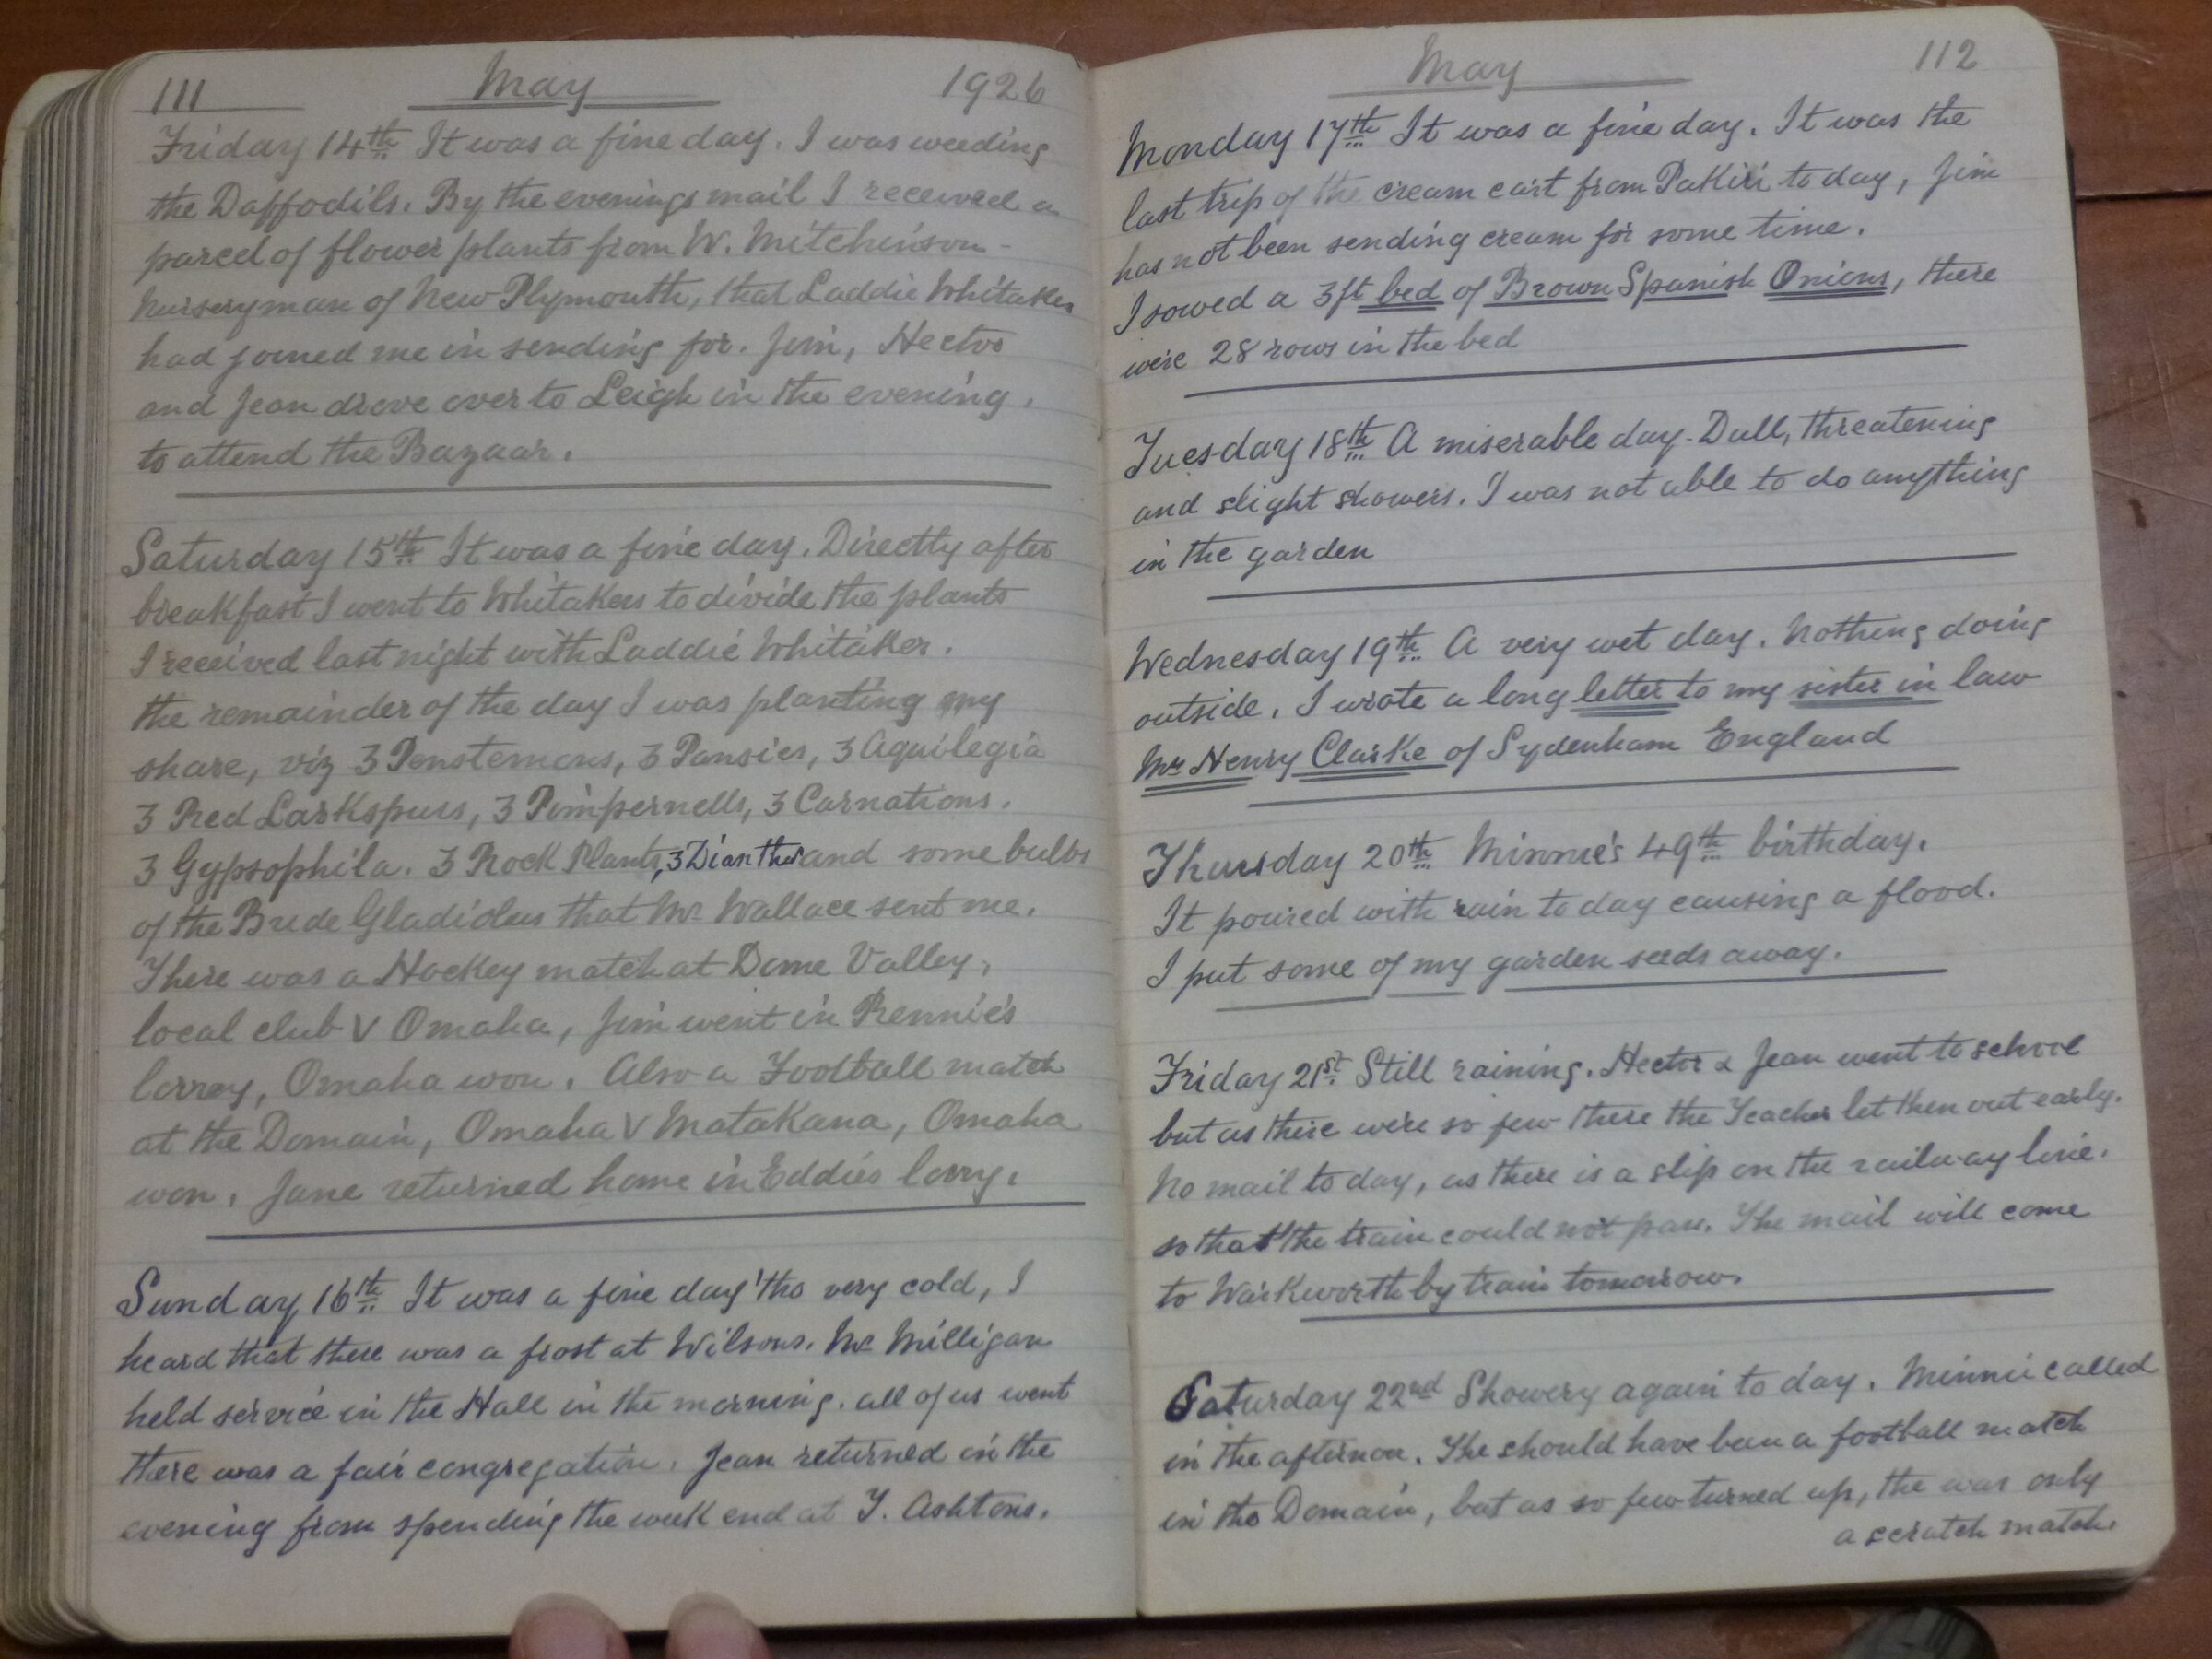 111 May 1926
Friday 14th It was a fine day. I was weeding
the Daffodils. By the evenings mail I received a
parcel of flower plants from W. Mitchinson -
Nurseryman of New Plymouth, that Laddie Whitaker
had joined me in sending for. Jim, Hector
and Jean drove over to Leigh in the evening.
to attend the Bazaar.
Saturday 15th It was a fine day. Directly after
breakfast I went to Whitakers to divide the plants
I received last night with Laddie Whitaker.
the remainder of the day I was planting my
share, viz 3 Penstemons, 3 Pansies, 3 Aquilegia
3 Red Larkspurs, 3 Pimpernells, 3 Carnations.
3 Gypsophila. 3 Rock Plants, 3 Dianthus and some bulbs
of the Bride Gladiolus that Mr Wallace sent me.
There was a Hockey match at Dome Valley,
local club V Omaha, Jim went in Rennie's
lorrey, Omaha won. Also a Football match
at the Domain, Omaha V Matakana, Omaha
won. Jane returned home in Eddies lorry.
Sunday 16th It was a fine day 'tho very cold, I
heard that there was a frost at Wilsons. Mr Milligan
held service in the Hall in the morning. all of us went
there was a fair congregation. Jean returned in the
evening from spending the week end at T. Ashtons.
May 112
Monday 17th It was a fine day. It was the
last trip of the cream cart from Pakiri to day, Jim
has not been sending cream for some time.
I sowed a 3ft bed of Brown Spanish Onions, there
were 28 rows in the bed
Tuesday 18th A miserable day - Dull, threatening
and slight showers. I was not able to do anything
in the garden
Wednesday 19th A very wet day. Nothing doing
outside. I wrote a long letter to my sister in law
Mrs Henry Clarke of Sydenham England
Thursday 20th Minnie's 49th birthday.
It poured with rain to day causing a flood.
I put some of my garden seeds away.
Friday 21st Still raining. Hector & Jean went to school
but as there were so few there the Teacher let them out early.
No mail to day, as there is a slip on the railway line.
so that the train could not pass. The mail will come
to Warkworth by train tomorrow.
Saturday 22nd Showery again to day. Minnie called
in the afternoon. The should have been a football match
in the Domain, but as so few turned up, the was only
a scratch match.